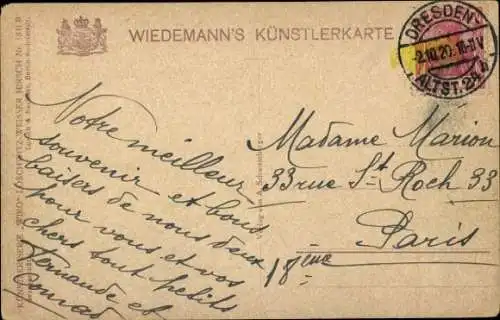 WIEDEMANN'S KÜNSTLERKARTE
DRESDEN
-2.10.20.
ALTST. 24
Notre meilleur
souvenir et bons
baisers de nous deux
pour vous et vos
chers tout petits
Fernande et
Madame Marion
33 rue St Roch 33
Paris
18ème